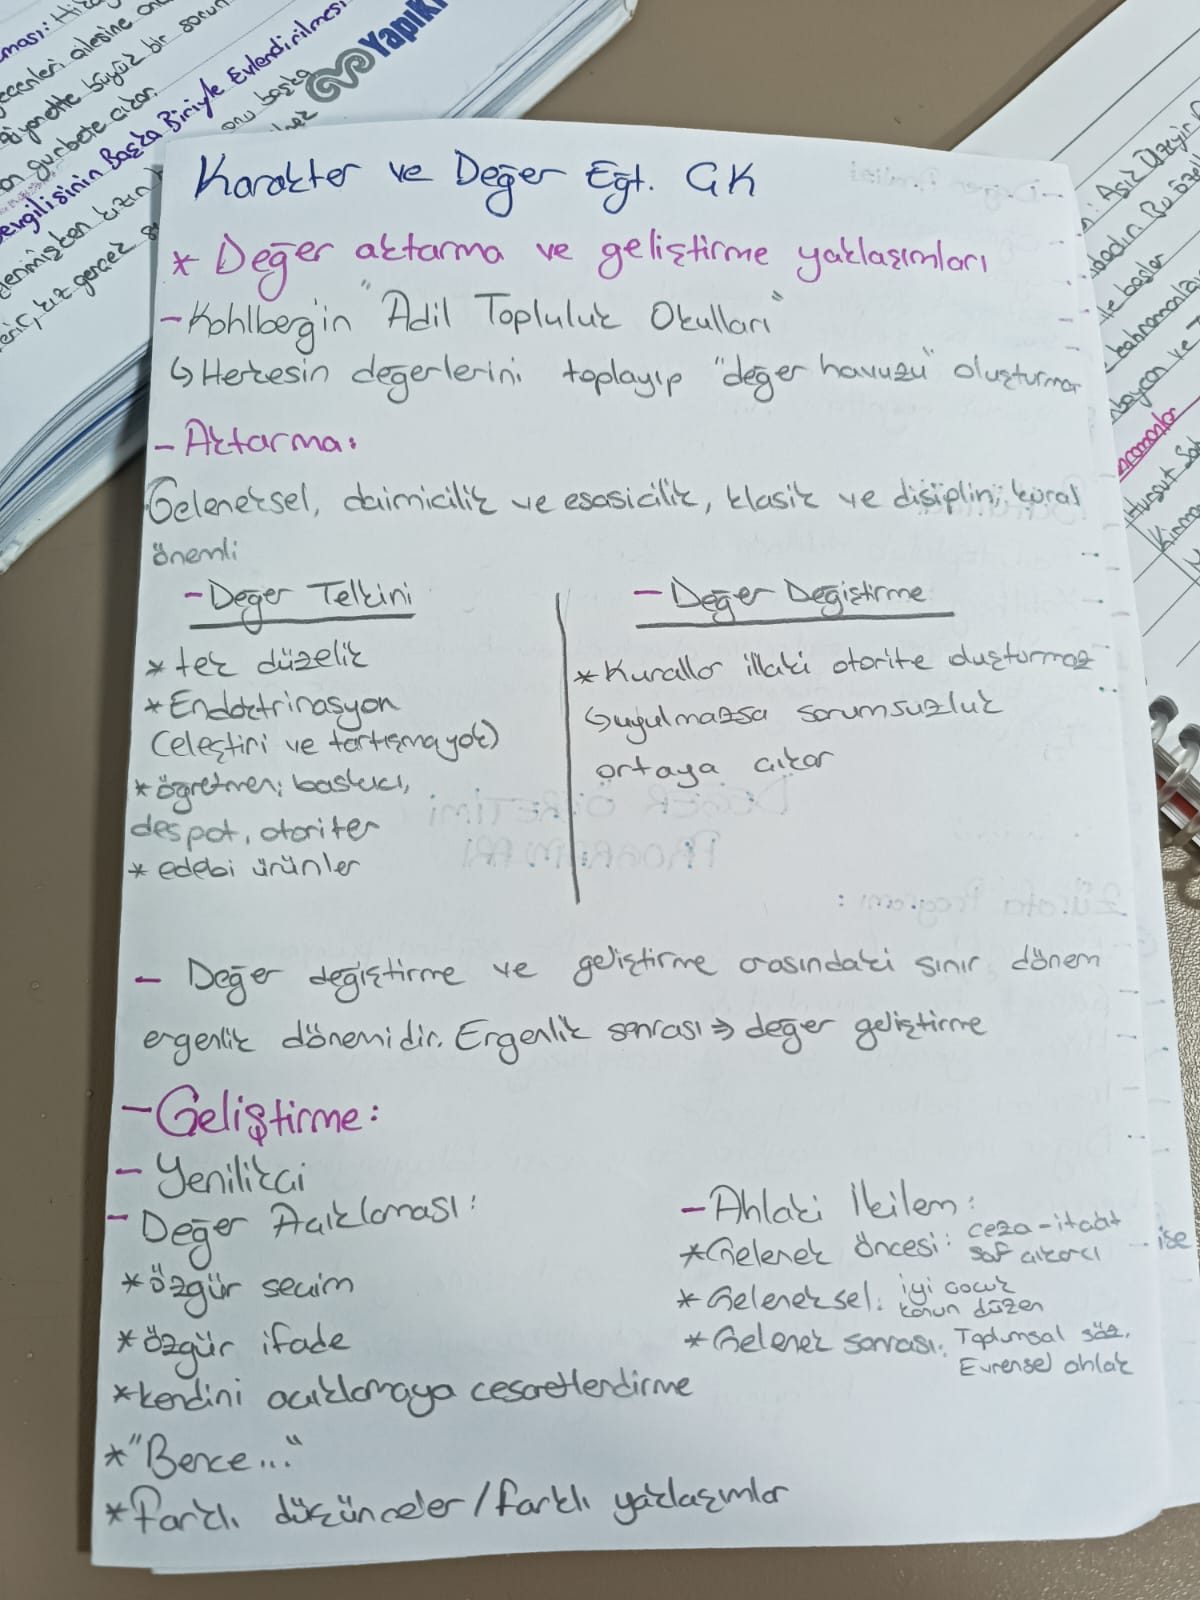 Karakter ve Değer Eğt. GK
* Değer aktarma ve geliştirme yaklaşımları
- Kohlberg'in "Adil Topluluk Okulları"
↳ Herkesin değerlerini toplayıp "değer havuzu" oluşturmak
- Aktarma:
Geleneksel, daimicilik ve esasicilik, klasik ve disiplin, kural
önemli
- Değer Telkini
* tek düzelik
* Endoktrinasyon
(eleştiri ve tartışma yok)
* öğretmen; baskıcı,
despot, otoriter
* edebi ürünler
- Değer Değiştirme
* Kurallar illaki otorite oluşturmaz
↳ uyulmazsa sorumsuzluk
ortaya çıkar
- Değer değiştirme ve geliştirme arasındaki sınır dönem
ergenlik dönemidir. Ergenlik sonrası ⇒ değer geliştirme
- Geliştirme:
- Yenilikçi
- Değer Açıklaması:
* özgür seçim
* özgür ifade
* kendini açıklamaya cesaretlendirme
* "Bence..."
* Farklı düşünceler / farklı yaklaşımlar
- Ahlaki İkilem:
* Gelenek öncesi: ceza - itaat
saf çıkarcı
* Geleneksel: iyi çocuk
kanun düzen
* Gelenek sonrası: Toplumsal söz.
Evrensel ahlak
YapıKr
evgilisinin Başka Biriyle Evlendirilmesi
ise